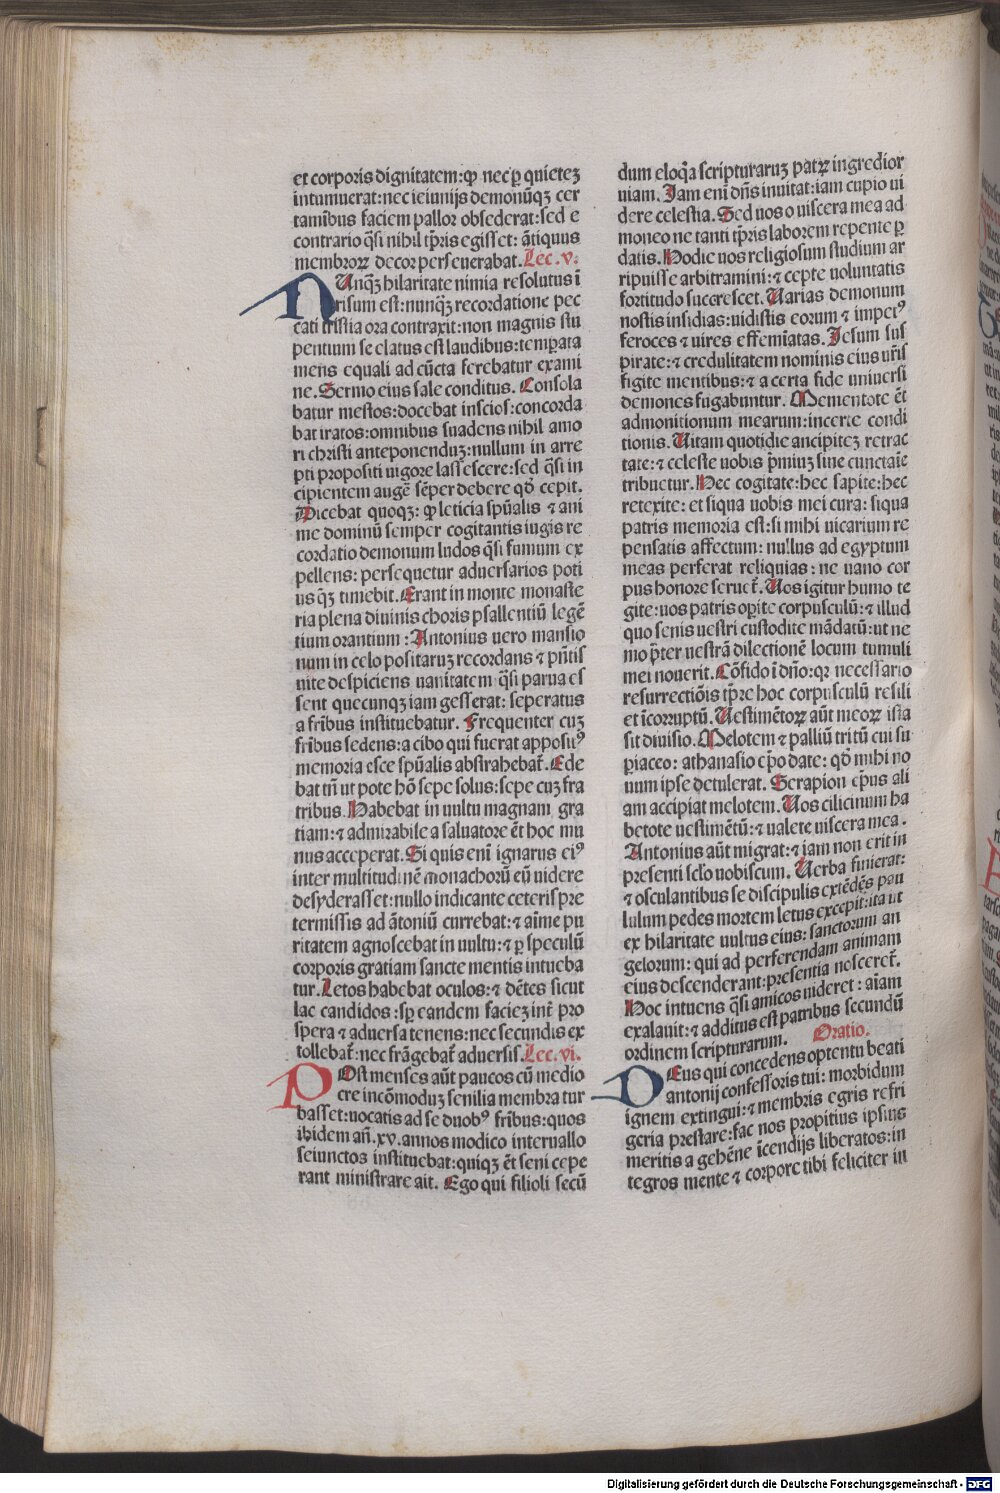 et corporis dignitatem: ꝙ nec ꝑ quietez
intumuerat: nec ieiunijs demonũqꝫ cer
tamībus faciem pallor obsederat: sed e
contrario q̃si nihil tp̃ris egisset: ãtiquus
membroꝝ decor perseuerabat. Lec. v.
NUnqꝫ hilaritate nimia resolutus ĩ
risum est: nunqꝫ recordatione pec
cati tristia ora contraxit: non magnis stu
pentium se elatus est laudibus: temꝑata
mens equali ad cũcta ferebatur exami
ne. Sermo eius sale conditus. Consola
batur mestos: docebat inscios: concorda
bat iratos: omnibus suadens nihil amo
ri christi anteponenduꝫ: nullum in arre
pti propositi uigore lassescere: sed q̃si in
cipientem augẽ sẽper debere qd̃ cepit.
Dicebat quoqꝫ: ꝙ leticia spũalis ⁊ ani
me dominũ semper cogitantis iugis re
cordatio demonum ludos q̃si fumum ex
pellens: persequetur aduersarios poti
us qꝫ timebit. Erant in monte monaste
ria plena diuinis choris psallentiũ legẽ
tium orantium: Antonius uero mansio
num in celo positaruꝫ recordans ⁊ pñtis
uite despiciens uanitatem q̃si parua es
sent quecunqꝫ iam gesserat: seperatus
a fribus instituebatur. Frequenter cuꝫ
fribus sedens: a cibo qui fuerat apposit⁹
memoria esce spũalis abstrahebat̃. Ede
bat tñ ut pote hõ sepe solus: sepe cuꝫ fra
tribus. Habebat in uultu magnam gra
tiam: ⁊ admirabile a saluatore ẽt hoc mu
nus acceperat. Si quis enĩ ignarus ei⁹
inter multitudinẽ monachorũ eũ uidere
desyderasset: nullo indicante ceteris pre
termissis ad ãtoniũ currebat: ⁊ aĩme pu
ritatem agnoscebat in uultu: ⁊ ꝑ speculũ
corporis gratiam sancte mentis intueba
tur. Letos habebat oculos: ⁊ dẽtes sicut
lac candidos: sꝑ eandem faciez int̃ pro
spera ⁊ aduersa tenens: nec secundis ex
tollebat̃: nec frãgebat̃ aduersis. Lec. vi.
POst menses aũt paucos cũ medio
cre incõmoduꝫ senilia membra tur
basset: uocatis ad se duob⁹ fribus: quos
ibidem añ. xv. annos modico interuallo
seiunctos instituebat: quiqꝫ ẽt seni cepe
rant ministrare ait. Ego qui filioli secũ
dum eloq̃a scripturaruꝫ patꝝ ingredior
uiam. Iam enĩ dñs inuitat: iam cupio ui
dere celestia. Sed uos o uiscera mea ad
moneo ne tanti tp̃ris laborem repente ꝑ
datis. Hodie uos religiosum studium ar
ripuisse arbitramini: ⁊ cepte uoluntatis
fortitudo succrescet. Uarias demonum
nostis insidias: uidistis eorum ⁊ impet⁹
feroces ⁊ uires effemĩatas. Iesum sus
pirate: ⁊ credulitatem nominis eius ur̃is
figite mentibus: ⁊ a certa fide uniuersi
demones fugabuntur. Mementote ẽt
admonitionum mearum: incerte condi
tionis. Uitam quotidie ancipiteꝫ retrac
tate: ⁊ celeste uobis p̃miuꝫ sine cunctaĩe
tribuetur. Hec cogitate: hec sapite: hec
retexite: et siqua uobis mei cura: siqua
patris memoria est: si mihi uicarium re
pensatis affectum: nullus ad egyptum
meas perferat reliquias: ne uano cor
pus honore seruet̃. Uos igitur humo te
gite: uos patris oꝑite corpusculũ: ⁊ illud
quo senis uestri custodite mãdatũ: ut ne
mo p̃ter uestrã dilectionẽ locum tumuli
mei nouerit. Cõfido ĩ dño: qꝛ necessario
resurrectiõis tp̃re hoc corpusculũ resili
et ĩcorruptũ. Uestimẽtoꝝ aũt meoꝝ ista
sit diuisio. Melotem ⁊ palliũ tritũ cui su
ꝑiaceo: athanasio ep̃o date: qd̃ mihi no
uum ipse detulerat. Serapion ep̃us ali
am accipiat melotem. Uos cilicinum ha
betote uestimẽtũ: ⁊ ualete uiscera mea.
Antonius aũt migrat: ⁊ iam non erit in
presenti sclo uobiscum. Uerba finierat:
⁊ osculantibus se discipulis extẽdẽs pau
lulum pedes mortem letus excepit: ita ut
ex hilaritate uultus eius: sanctorum an
gelorum: qui ad perferendam animam
eius descenderant: presentia nosceret̃.
Hoc intuens q̃si amicos uideret: aĩam
exalauit: ⁊ additus est patribus secundũ
ordinem scripturarum. Oratio.
DEus qui concedens optentu beati
antonij confessoris tui: morbidum
ignem extingui: ⁊ membris egris refri
geria prestare: fac nos propitius ipsius
meritis a gehẽne ĩcendijs liberatos: in
tegros mente ⁊ corpore tibi feliciter in
Digitalisierung gefördert durch die Deutsche Forschungsgemeinschaft - DFG